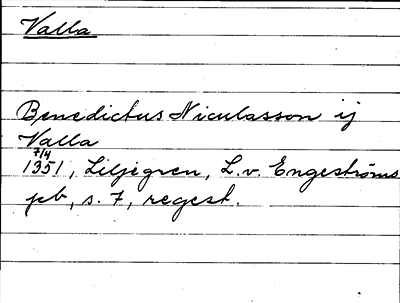 Valla
Benedictus Niculasson ij
Valla
7/4
1351, Liljegren, L. v. Engeströms
pb, s. 7, regest.